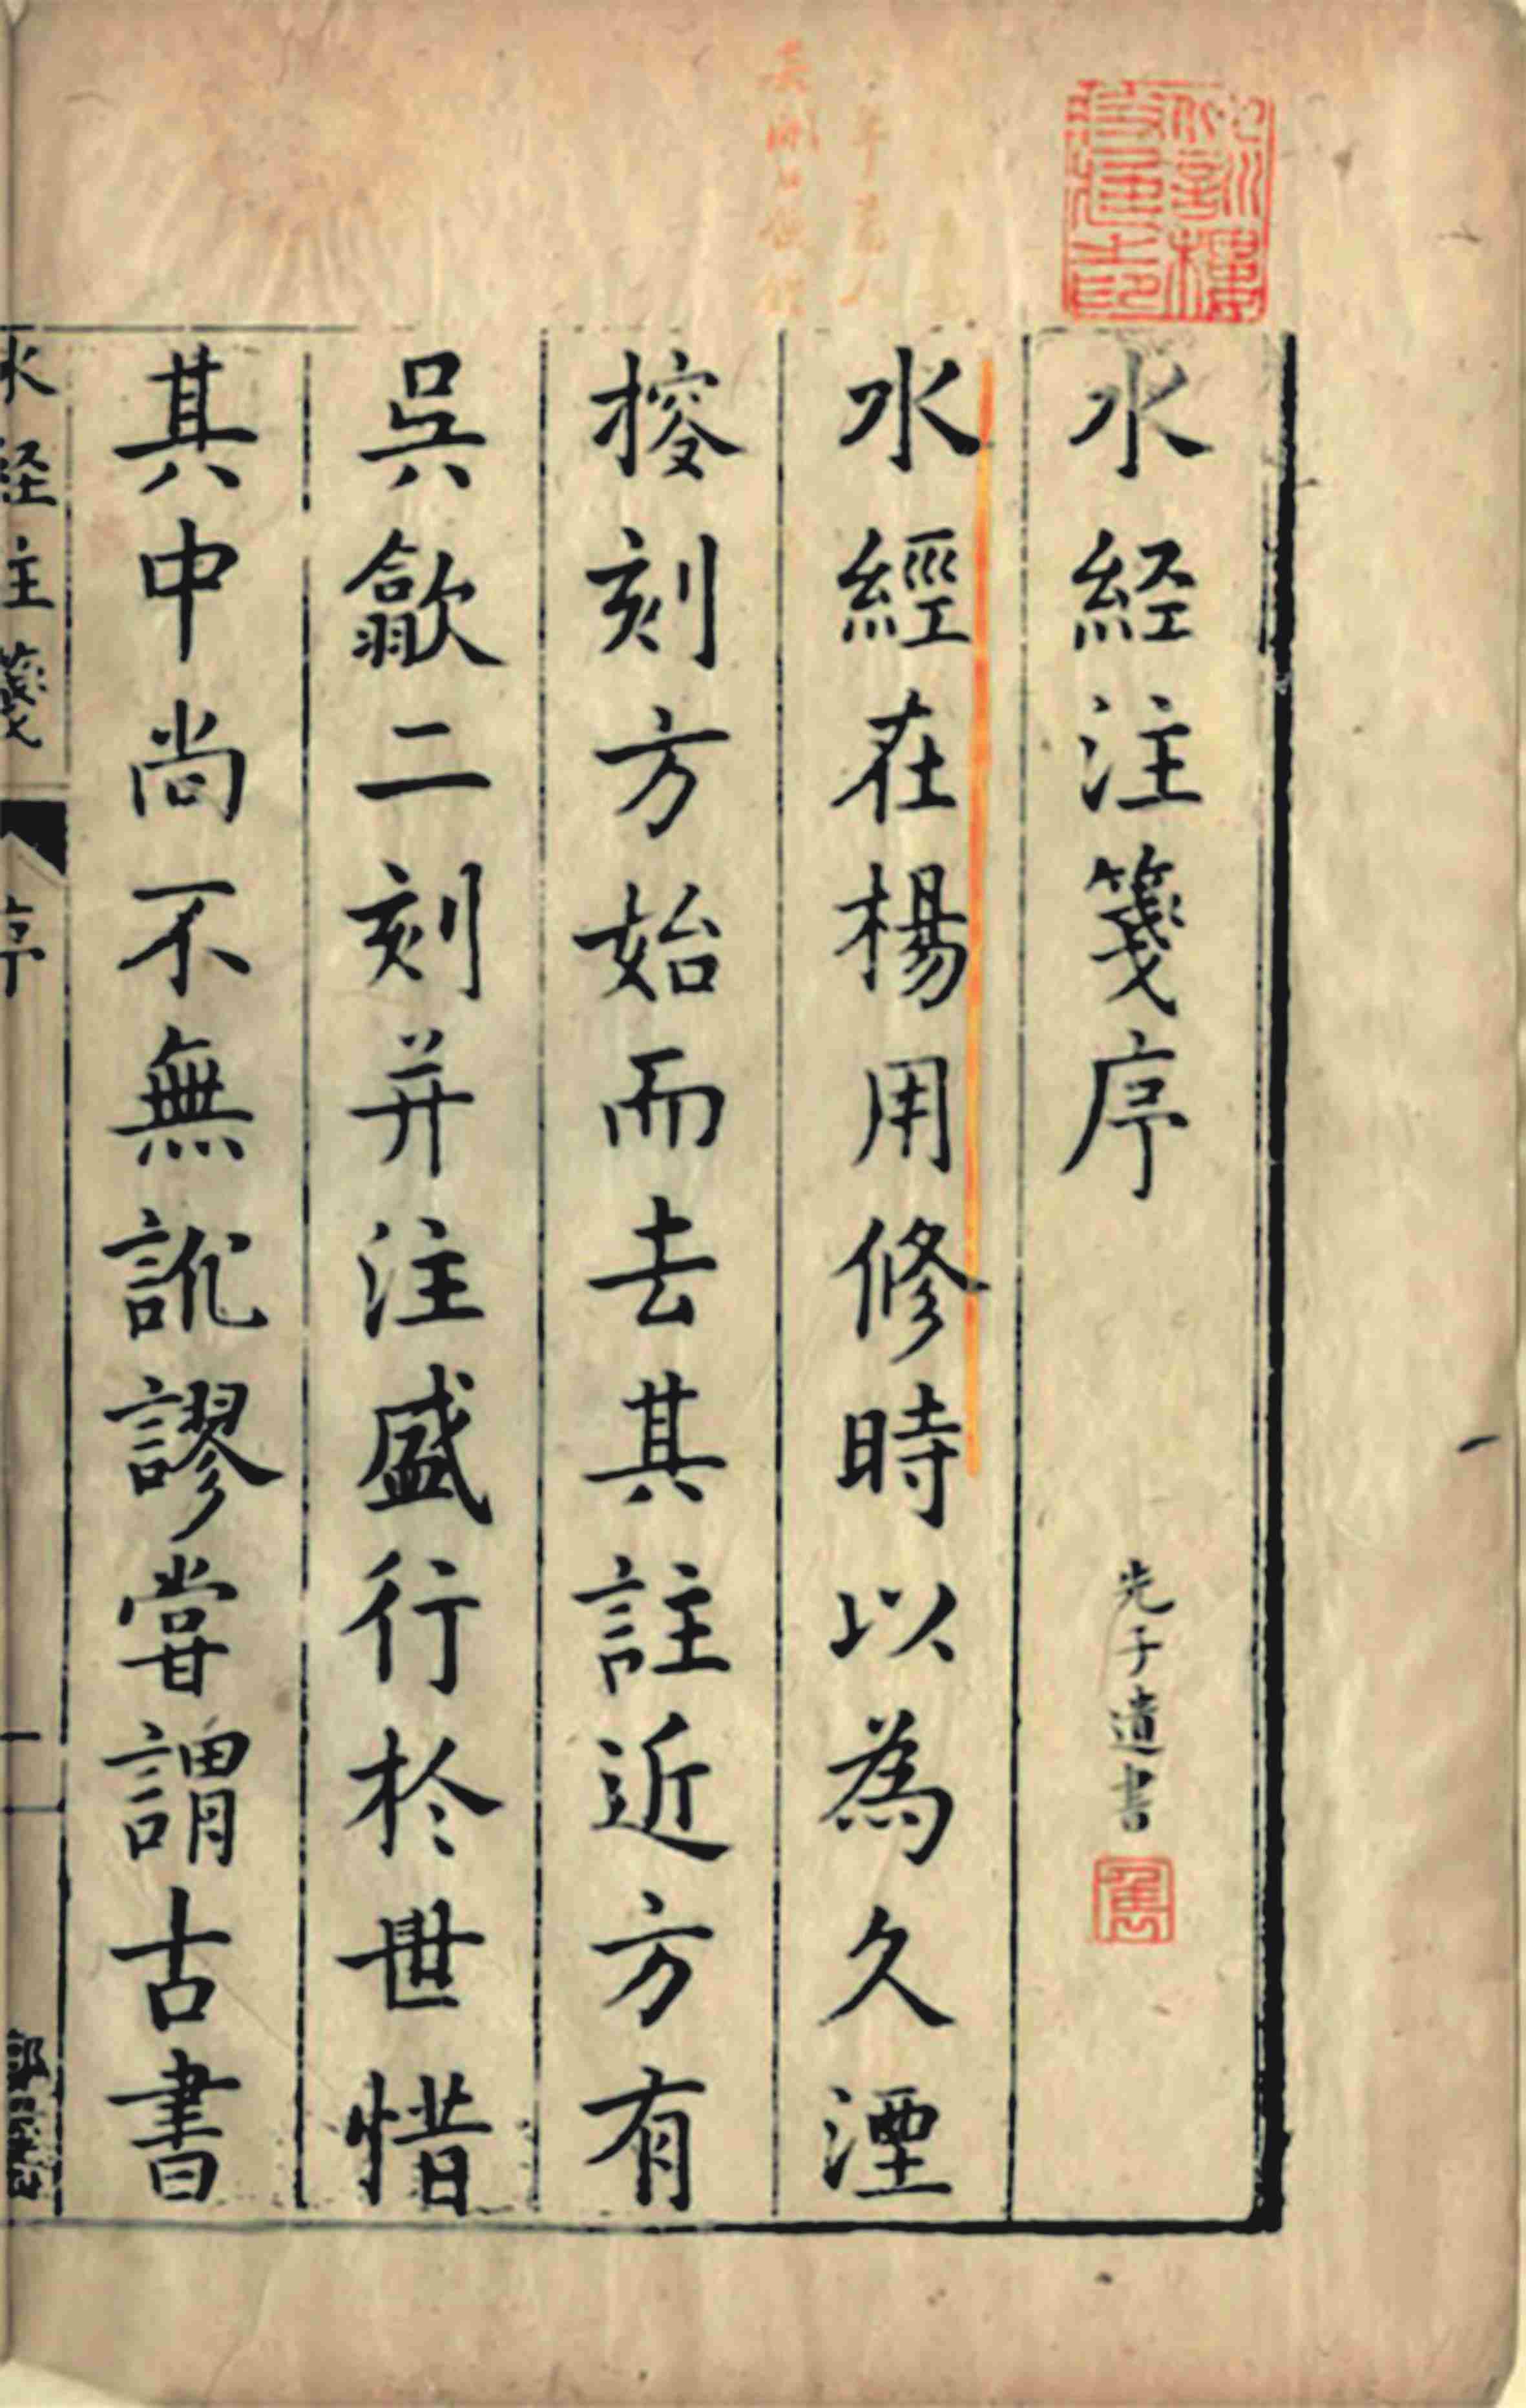 水経注箋序
先子遺書
水經在楊用修時以為久湮
搜刻方始而去其註近方有
吳歙二刻并注盛行於世惜
其中尚不無訛謬嘗謂古書
水経注箋
序
一